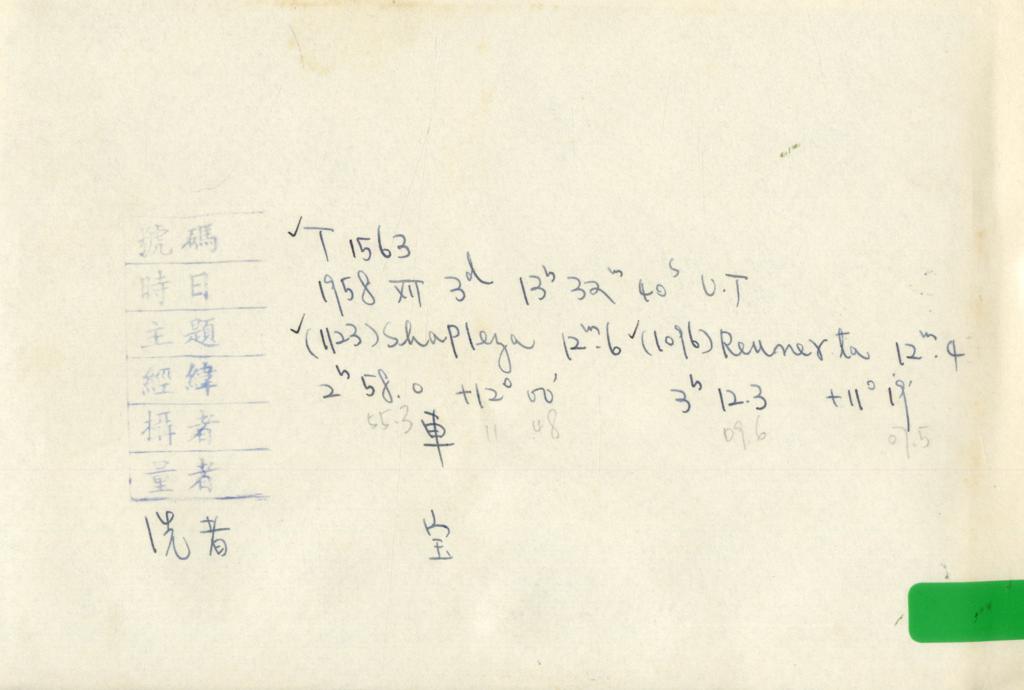 號碼 ✓T 1563
時日 1958 XII 3ᵈ 13ʰ 32ᵐ 40ˢ U.T
主題 ✓(1123) Shapleya 12ᵐ.6 ✓(1096) Reunerta 12ᵐ.4
經緯 2ʰ 58.0 +12° 00′ 3ʰ 12.3 +11° 19′
55.3 11 48 09.6 07.5
攝者 車
量者
洗者 宝